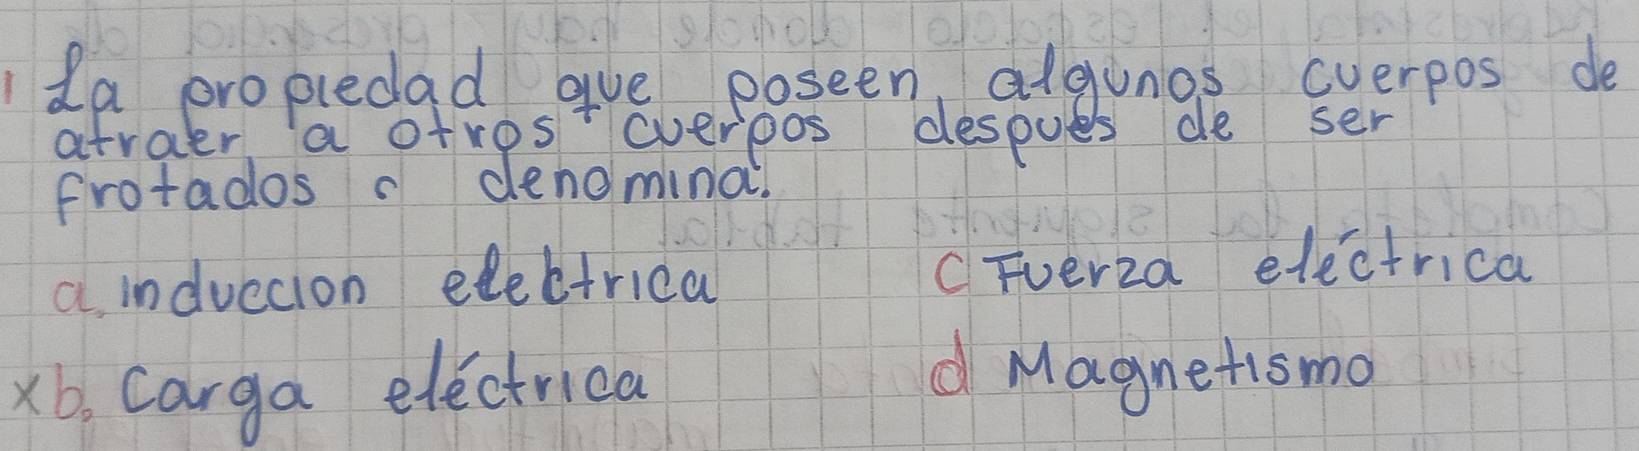 1 La propiedad que poseen algunos cuerpos de
atraer a otros cuerpos despues de ser
frotados denomina.
a. induccion electrica
c Fuerza eléctrica
x b. Carga eléctrica
d Magnetismo